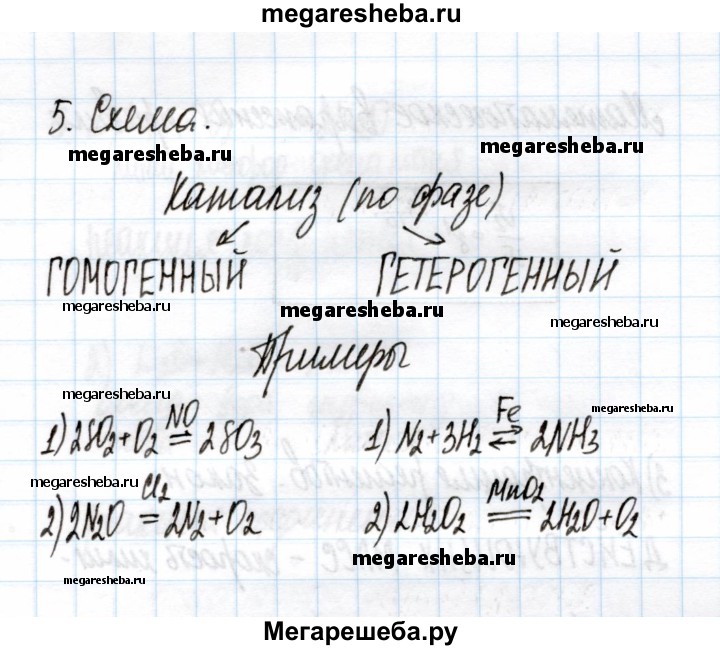 megaresheba.ru
5. Схема.
megaresheba.ru megaresheba.ru
Катализ (по фазе)
↙ ↘
ГОМОГЕННЫЙ ГЕТЕРОГЕННЫЙ
megaresheba.ru megaresheba.ru megaresheba.ru
Примеры
megaresheba.ru megaresheba.ru
NO Fe
1) 2SO2+O2 ⇌ 2SO3 1) N2+3H2 ⇄ 2NH3
megaresheba.ru Cl2 megaresheba.ru MnO2
2) 2N2O = 2N2+O2 2) 2H2O2 = 2H2O+O2
megaresheba.ru megaresheba.ru
Мегарешеба.ру